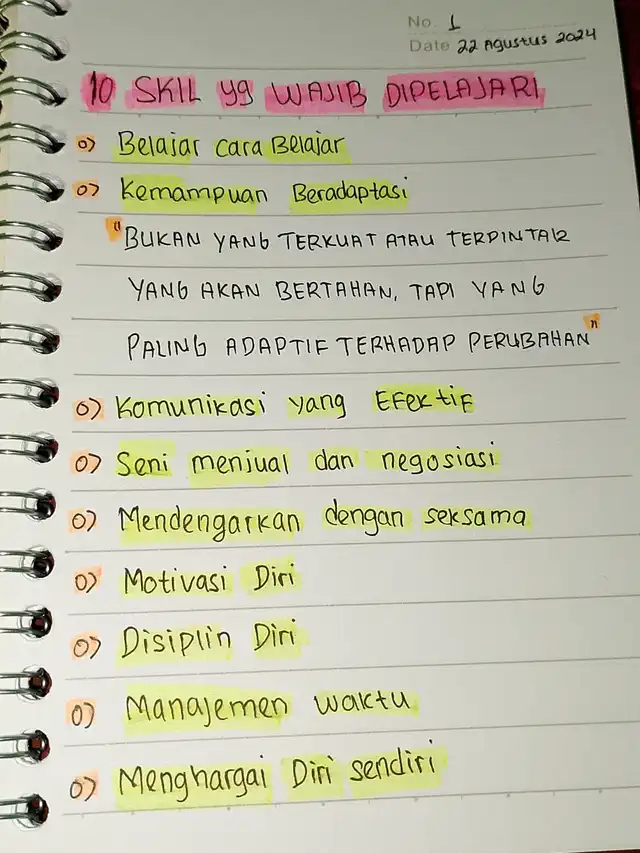 No. 1
Date 22 Agustus 2024
10 SKIL yg WAJIB DIPELAJARI
o) Belajar cara Belajar
o) Kemampuan Beradaptasi
"BUKAN YANG TERKUAT ATAU TERPINTAR
YANG AKAN BERTAHAN, TAPI YANG
PALING ADAPTIF TERHADAP PERUBAHAN"
o) Komunikasi yang Efektif
o) Seni menjual dan negosiasi
o) Mendengarkan dengan seksama
o) Motivasi Diri
o) Disiplin Diri
o) Manajemen waktu
o) Menghargai Diri sendiri